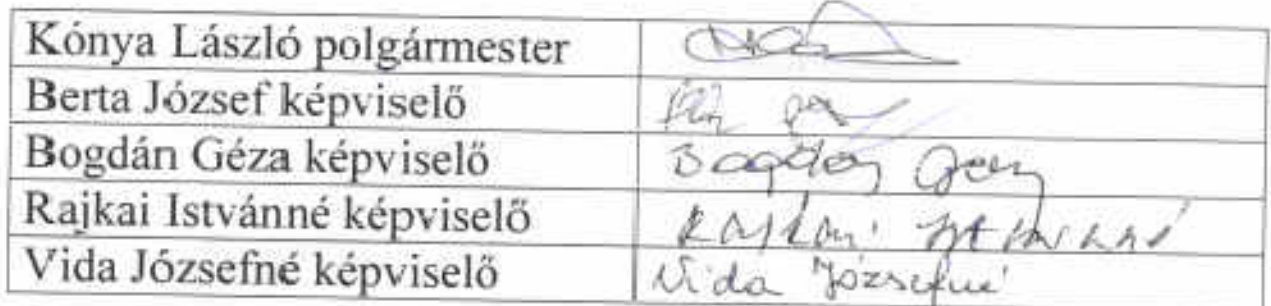 Kónya László polgármester
Berta József képviselő
Bogdán Géza képviselő Bogdán Géza
Rajkai Istvánné képviselő Rajkai Istvánné
Vida Józsefné képviselő Vida Józsefné